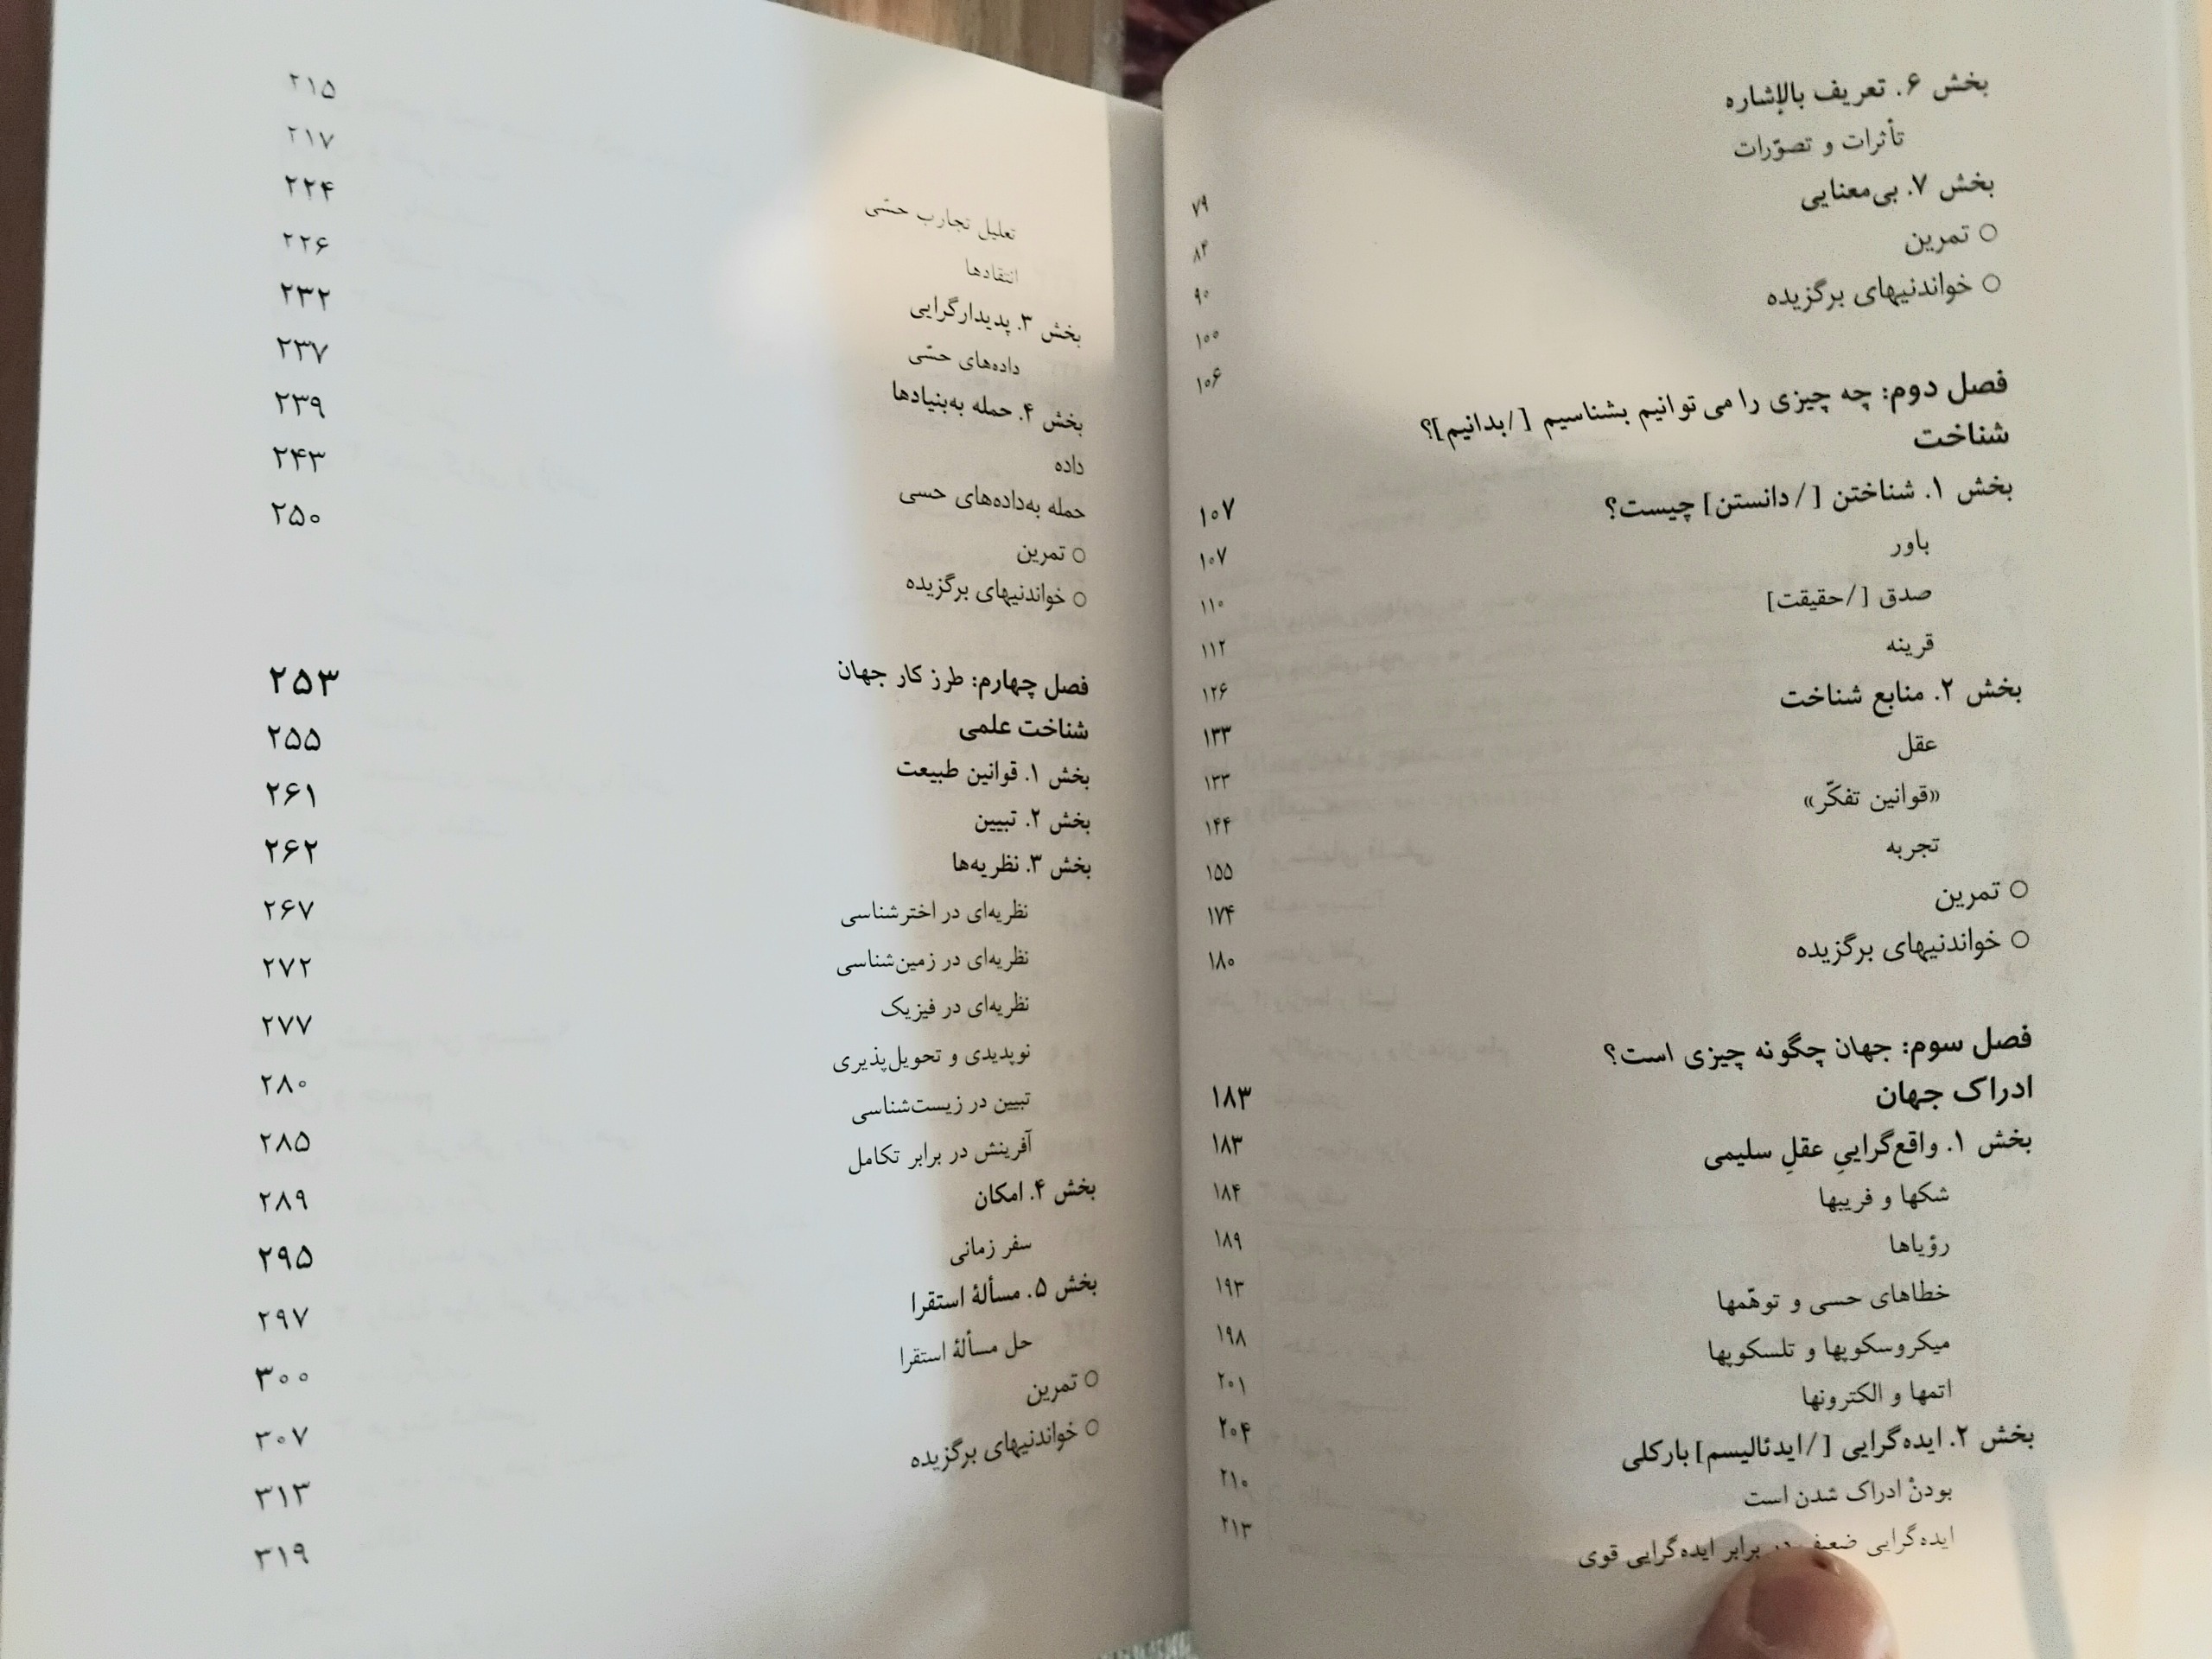 بخش ۶. تعریف بالإشاره ۷۹
تأثرات و تصوّرات ۸۴
بخش ۷. بی‌معنایی ۹۰
○ تمرین ۱۰۰
○ خواندنیهای برگزیده ۱۰۶
فصل دوم: چه چیزی را می‌توانیم بشناسیم [/بدانیم]؟
شناخت ۱۰۷
بخش ۱. شناختن [/دانستن] چیست؟ ۱۰۷
باور ۱۱۰
صدق [/حقیقت] ۱۱۲
قرینه ۱۲۶
بخش ۲. منابع شناخت ۱۳۳
عقل ۱۳۳
«قوانین تفکّر» ۱۴۴
تجربه ۱۵۵
○ تمرین ۱۷۴
○ خواندنیهای برگزیده ۱۸۰
فصل سوم: جهان چگونه چیزی است؟
ادراک جهان ۱۸۳
بخش ۱. واقع‌گراییِ عقلِ سلیمی ۱۸۳
شکها و فریبها ۱۸۴
رؤیاها ۱۸۹
خطاهای حسی و توهّمها ۱۹۳
میکروسکوپها و تلسکوپها ۱۹۸
اتمها و الکترونها ۲۰۱
بخش ۲. ایده‌گرایی [/ایدئالیسم] بارکلی ۲۰۴
بودنْ ادراک شدن است ۲۱۰
ایده‌گرایی ضعیف در برابر ایده‌گرایی قوی ۲۱۳
تعلیل تجارب حسّی ۲۱۵
انتقادها ۲۱۷
بخش ۳. پدیدارگرایی ۲۲۴
داده‌های حسّی ۲۲۶
بخش ۴. حمله به‌بنیادها ۲۳۲
داده ۲۳۷
حمله به‌داده‌های حسی ۲۳۹
○ تمرین ۲۴۳
○ خواندنیهای برگزیده ۲۵۰
فصل چهارم: طرز کار جهان
شناخت علمی ۲۵۳
بخش ۱. قوانین طبیعت ۲۵۵
بخش ۲. تبیین ۲۶۱
بخش ۳. نظریه‌ها ۲۶۲
نظریه‌ای در اخترشناسی ۲۶۷
نظریه‌ای در زمین‌شناسی ۲۷۲
نظریه‌ای در فیزیک ۲۷۷
نوپدیدی و تحویل‌پذیری ۲۸۰
تبیین در زیست‌شناسی ۲۸۵
آفرینش در برابر تکامل ۲۸۹
بخش ۴. امکان ۲۹۵
سفر زمانی ۲۹۷
بخش ۵. مسألهٔ استقرا ۳۰۰
حل مسألهٔ استقرا ۳۰۷
○ تمرین ۳۱۳
○ خواندنیهای برگزیده ۳۱۹